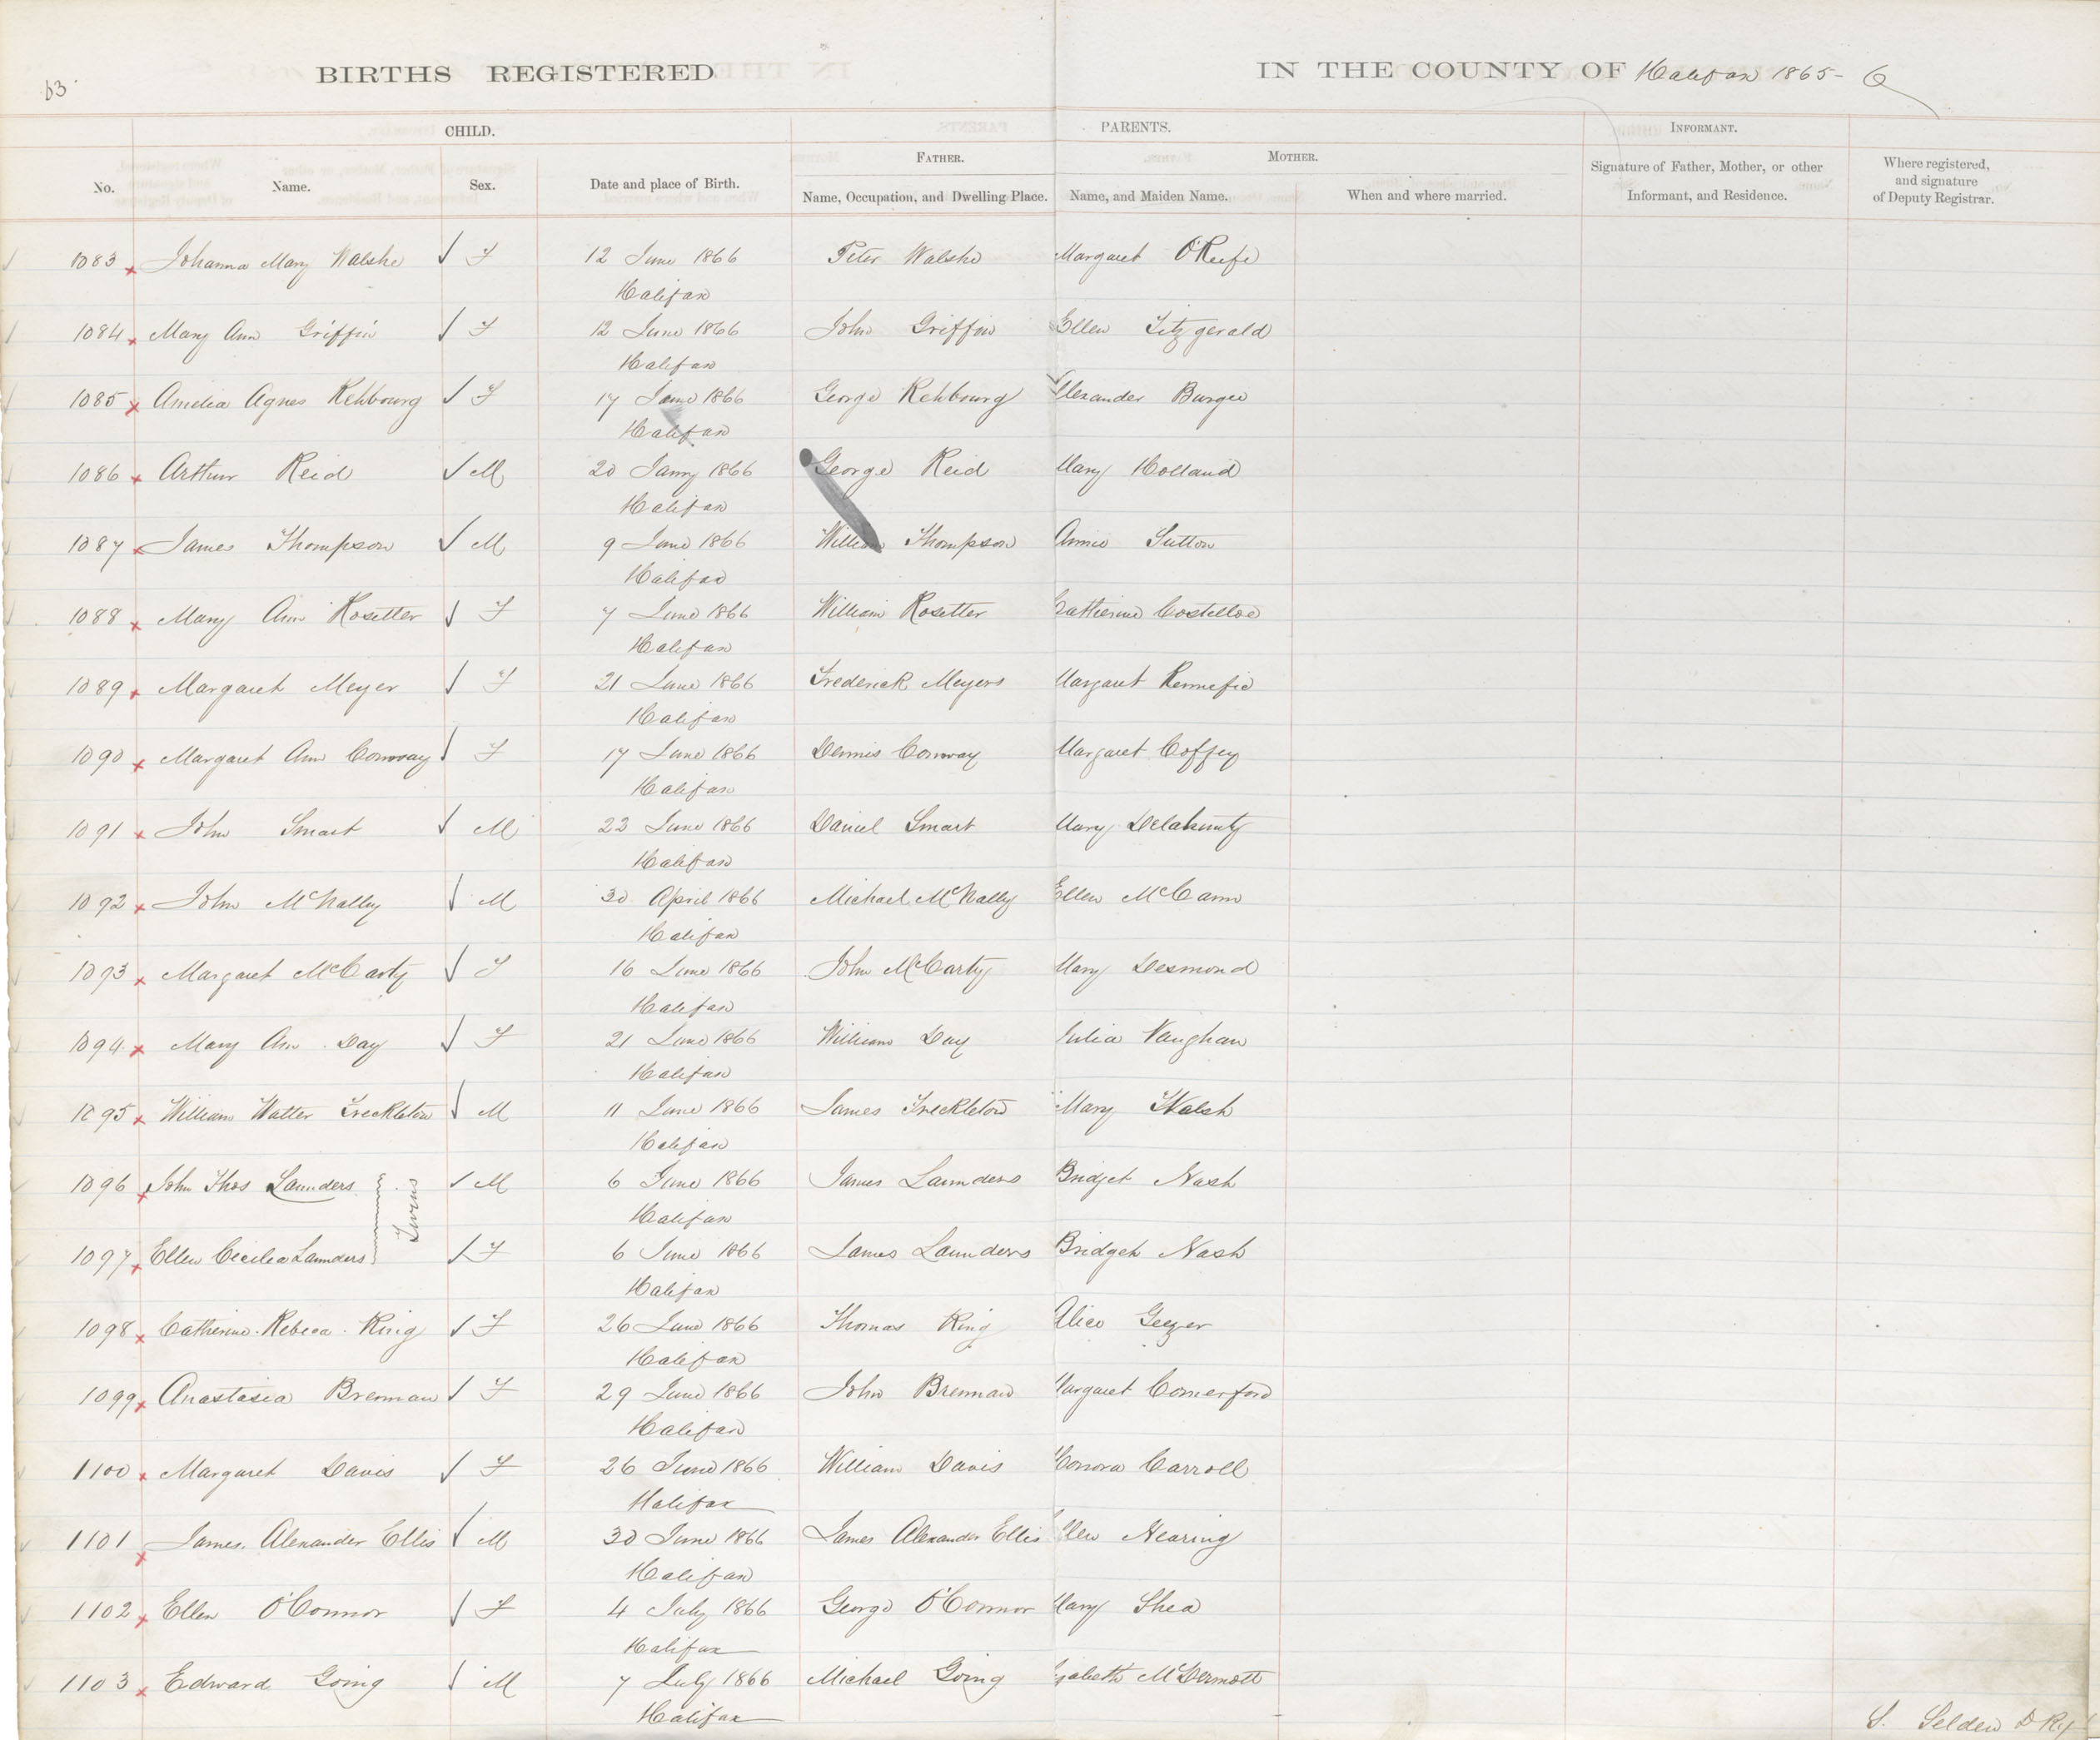 63
BIRTHS REGISTERED IN THE COUNTY OF Halifax 1865-6
CHILD. PARENTS. INFORMANT.
FATHER. MOTHER.
No. Name. Sex. Date and place of Birth. Name, Occupation, and Dwelling Place. Name, and Maiden Name. When and where married. Signature of Father, Mother, or other Informant, and Residence. Where registered, and signature of Deputy Registrar.
1083 Johanna Mary Walshe F 12 June 1866 Peter Walshe Margaret O'Keefe
Halifax
1084 Mary Ann Griffin F 12 June 1866 John Griffin Ellen Fitzgerald
Halifax
1085 Amelia Agnes Rehbourg F 17 June 1866 George Rehbourg Alexander Burgee
Halifax
1086 Arthur Reid M 20 Jany 1866 George Reid Mary Holland
Halifax
1087 James Thompson M 9 June 1866 William Thompson Annie Sutton
Halifax
1088 Mary Ann Rosetter F 7 June 1866 William Rosetter Catherine Costelloe
Halifax
1089 Margaret Meyer F 21 June 1866 Frederick Meyers Margaret Kennefic
Halifax
1090 Margaret Ann Conway F 17 June 1866 Dennis Conway Margaret Coffey
Halifax
1091 John Smart M 22 June 1866 Daniel Smart Mary Delahunty
Halifax
1092 John McNally M 30 April 1866 Michael McNally Ellen McCann
Halifax
1093 Margaret McCarty F 16 June 1866 John McCarty Mary Desmond
Halifax
1094 Mary Ann Day F 21 June 1866 William Day Julia Vaughan
Halifax
1095 William Walter Freckleton M 11 June 1866 James Freckleton Mary Walsh
Halifax
1096 John Thos Launders M 6 June 1866 James Launders Bridget Nash
Twins
Halifax
1097 Ellen Cecilia Launders F 6 June 1866 James Launders Bridget Nash
Halifax
1098 Catherine Rebeca King F 26 June 1866 Thomas King Alice Geyer
Halifax
1099 Anastasia Brennan F 29 June 1866 John Brennan Margaret Comerford
Halifax
1100 Margaret Davis F 26 June 1866 William Davis Honora Carroll
Halifax
1101 James Alexander Ellis M 30 June 1866 James Alexander Ellis Ellen Nearing
Halifax
1102 Ellen O'Connor F 4 July 1866 George O'Connor Mary Shea
Halifax
1103 Edward Going M 7 July 1866 Michael Going Isabeth McDermott
Halifax
S. Selden D Reg